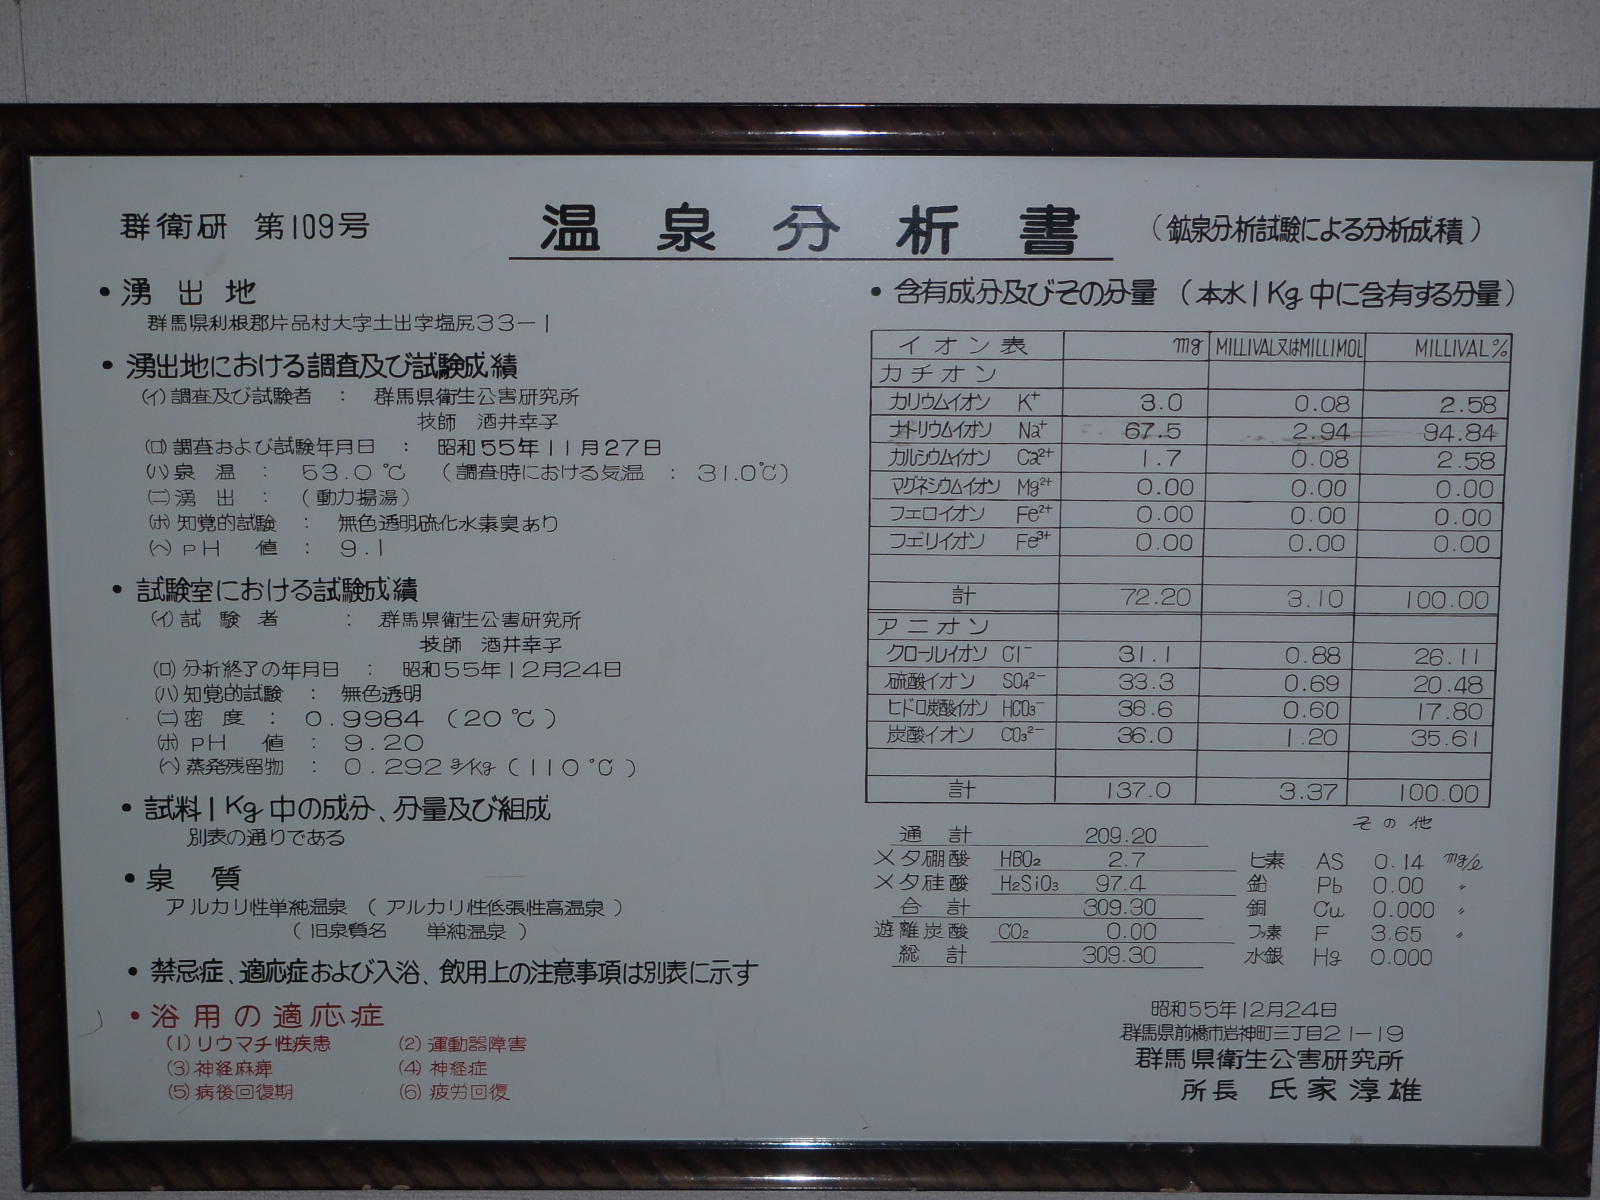 群衛研 第109号
温泉分析書
(鉱泉分析試験による分析成積)
• 湧出地
群馬県利根郡片品村大字土出字塩尻33-1
• 湧出地における調査及び試験成績
(イ) 調査及び試験者 : 群馬県衛生公害研究所
技師 酒井幸子
(ロ) 調査および試験年月日 : 昭和55年11月27日
(ハ) 泉温 : 53.0℃ (調査時における気温 : 31.0℃)
(ニ) 湧出 : (動力揚湯)
(ホ) 知覚的試験 : 無色透明硫化水素臭あり
(ヘ) pH 値 : 9.1
• 試験室における試験成績
(イ) 試験者 : 群馬県衛生公害研究所
技師 酒井幸子
(ロ) 分析終了の年月日 : 昭和55年12月24日
(ハ) 知覚的試験 : 無色透明
(ニ) 密度 : 0.9984 (20℃)
(ホ) pH 値 : 9.20
(ヘ) 蒸発残留物 : 0.292 g/Kg (110℃)
• 試料1Kg中の成分、分量及び組成
別表の通りである
• 泉質
アルカリ性単純温泉 (アルカリ性低張性高温泉)
(旧泉質名 単純温泉)
• 禁忌症、適応症および入浴、飲用上の注意事項は別表に示す
• 浴用の適応症
(1) リウマチ性疾患 (2) 運動器障害
(3) 神経麻痺 (4) 神経症
(5) 病後回復期 (6) 疲労回復
• 含有成分及びその分量 (本水1Kg中に含有する分量)
イオン表 mg MILLIVAL又はMILLIMOL MILLIVAL%
カチオン
カリウムイオン K⁺ 3.0 0.08 2.58
ナトリウムイオン Na⁺ 67.5 2.94 94.84
カルシウムイオン Ca²⁺ 1.7 0.08 2.58
マグネシウムイオン Mg²⁺ 0.00 0.00 0.00
フェロイオン Fe²⁺ 0.00 0.00 0.00
フェリイオン Fe³⁺ 0.00 0.00 0.00
計 72.20 3.10 100.00
アニオン
クロールイオン Cl⁻ 31.1 0.88 26.11
硫酸イオン SO₄²⁻ 33.3 0.69 20.48
ヒドロ炭酸イオン HCO₃⁻ 36.6 0.60 17.80
炭酸イオン CO₃²⁻ 36.0 1.20 35.61
計 137.0 3.37 100.00
通計 209.20
メタ硼酸 HBO₂ 2.7
メタ硅酸 H₂SiO₃ 97.4
合計 309.30
遊離炭酸 CO₂ 0.00
総計 309.30
その他
ヒ素 AS 0.14 mg/ℓ
鉛 Pb 0.00 〃
銅 Cu 0.000 〃
フッ素 F 3.65 〃
水銀 Hg 0.000
昭和55年12月24日
群馬県前橋市岩神町三丁目21-19
群馬県衛生公害研究所
所長 氏家淳雄